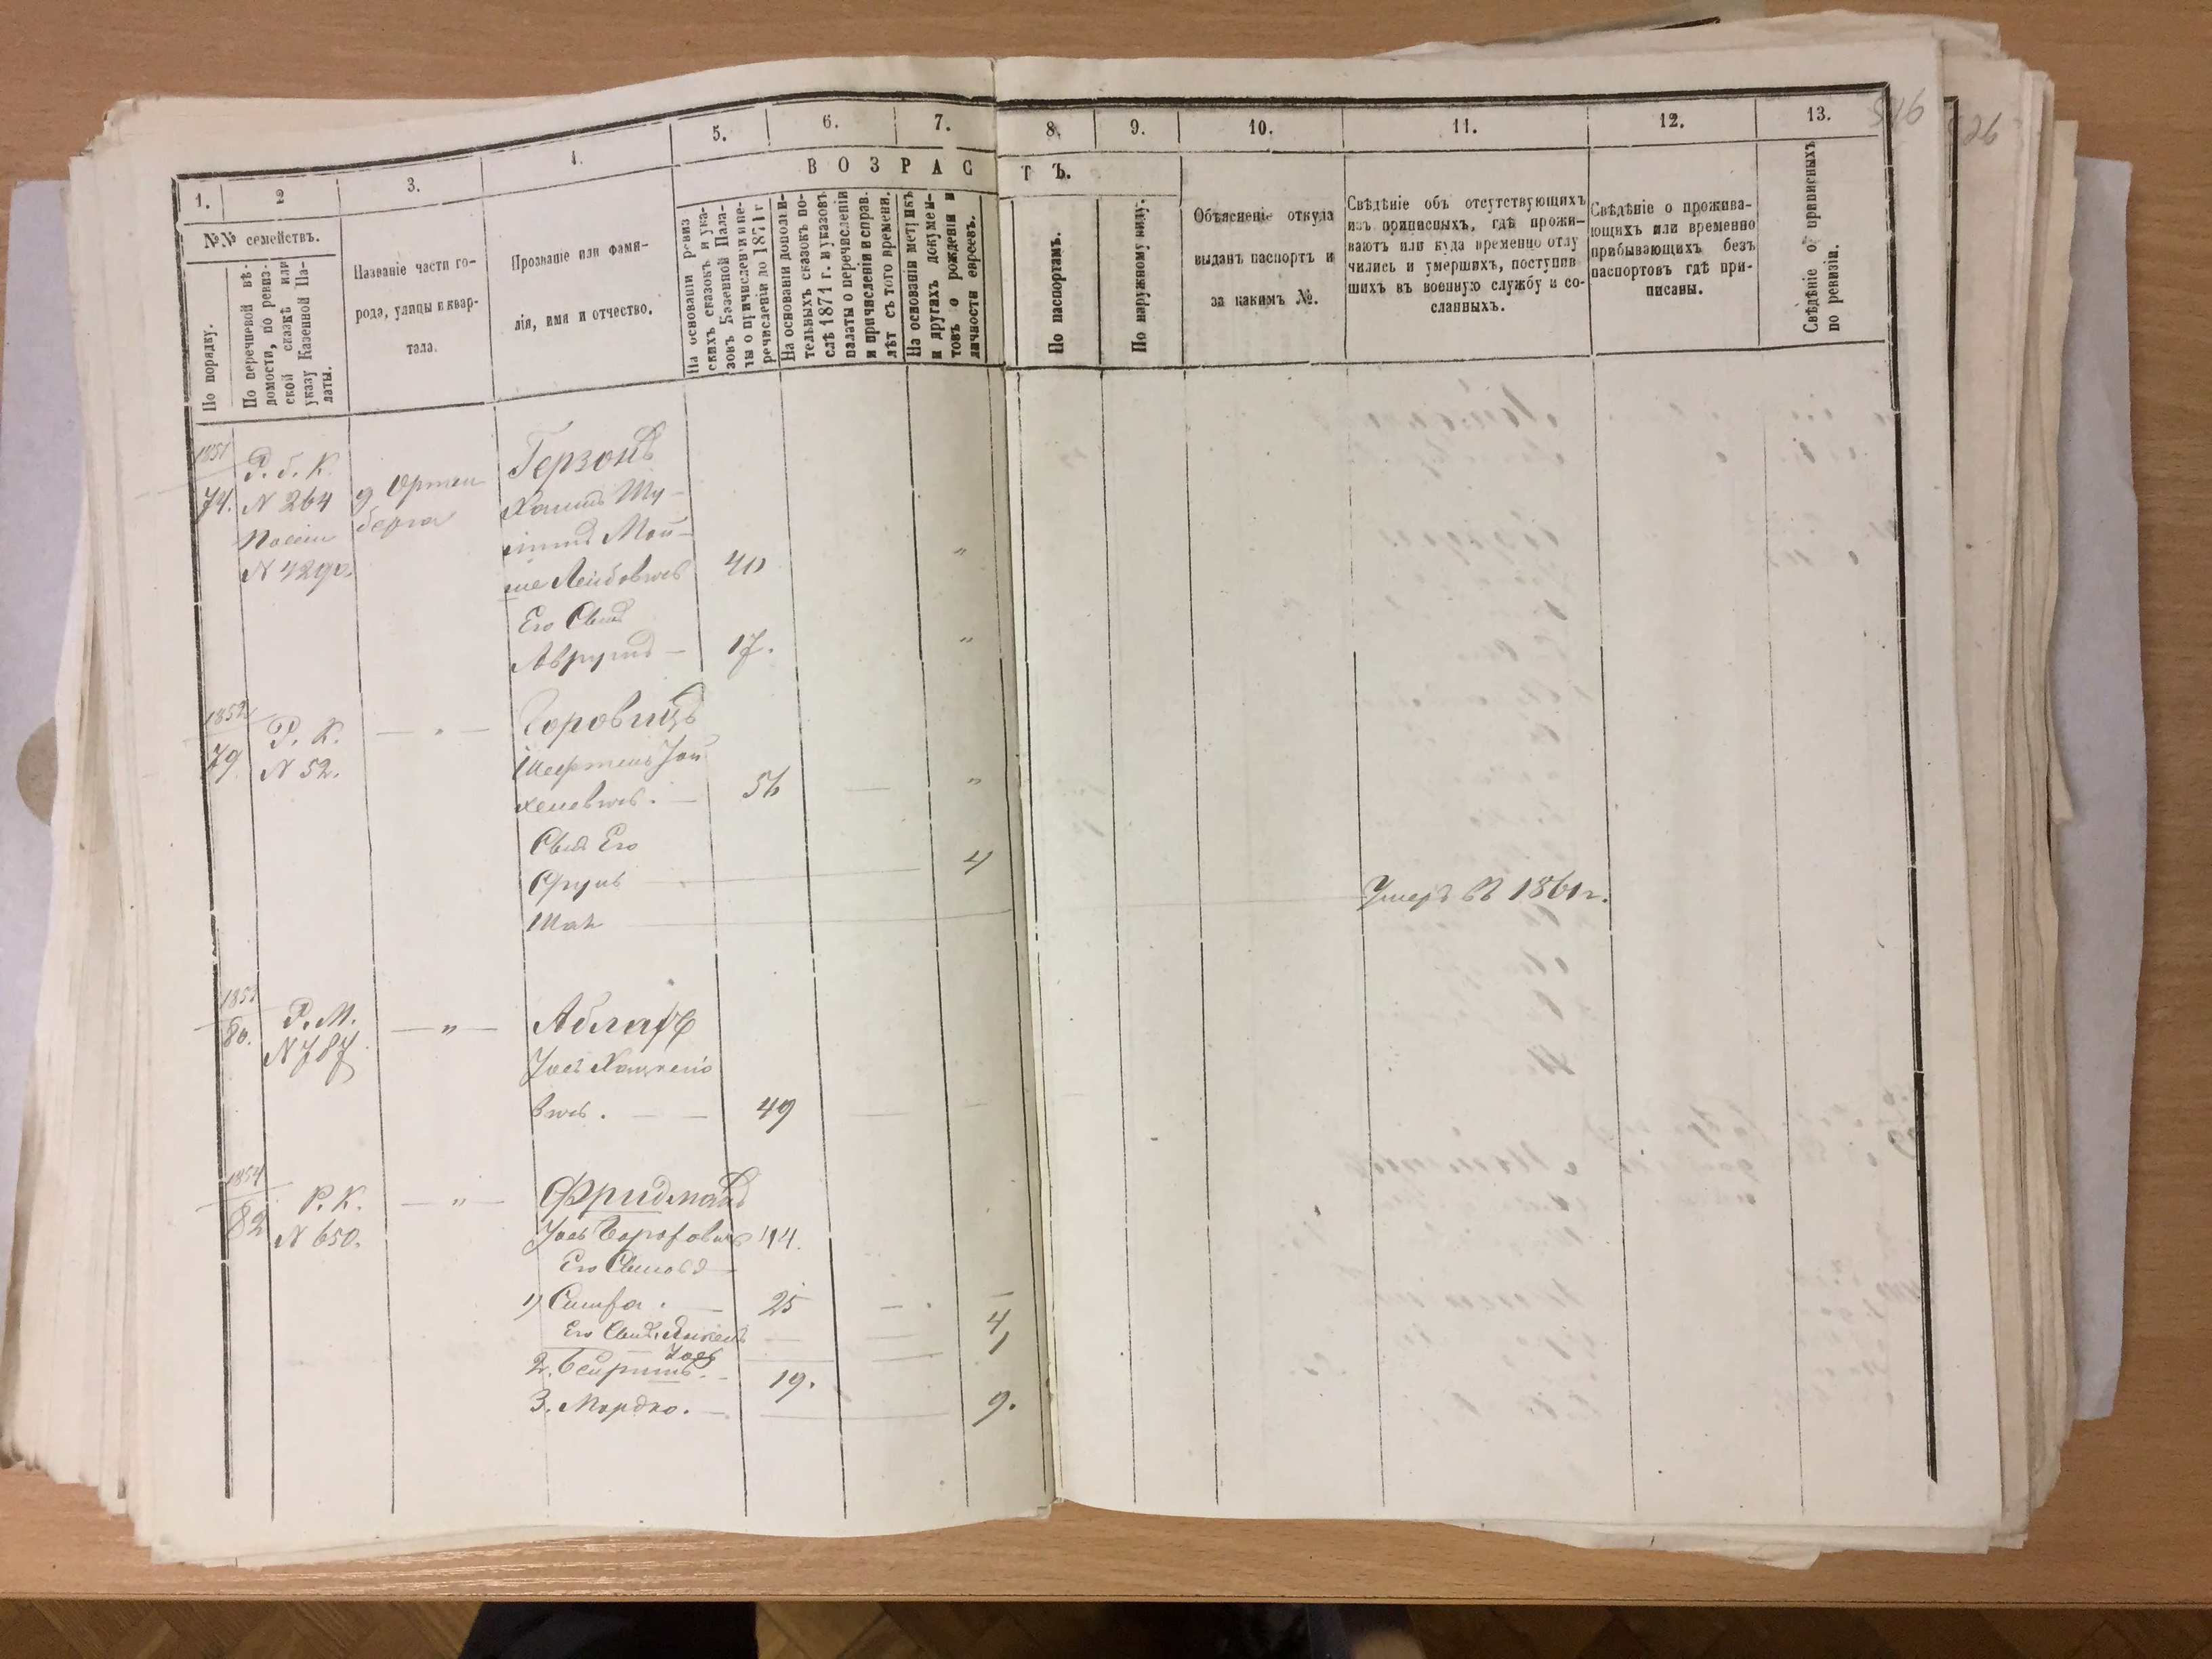 1.
2
3.
4.
5.
6.
7.
8.
9.
10.
11.
12.
13.
546
526
ВОЗРАСТЪ.
№№ семействъ.
По порядку.
По перечневой вѣ-
домости, по ревиз-
ской сказкѣ или
указу Казенной Па-
латы.
Названіе части го-
рода, улицы и квар-
тала.
Прозваніе или фами-
лія, имя и отчество.
На основаніи ревиз
скихъ сказокъ и ука-
зовъ Казенной Пала-
ты о причисленіи и пе-
речисленіи до 1871 г
На основаніи дополни-
тельныхъ сказокъ по-
слѣ 1871 г. и указовъ
палаты о перечисленіи
и причисленіи и справ.
лѣт съ того времени.
На основаніи метрикъ
и другихъ докумен-
товъ о рожденіи и
личности евреевъ.
По паспортамъ.
По наружному виду.
Объясненіе откуда
выданъ паспортъ и
за какимъ №.
Свѣдѣніе объ отсутствующихъ
изъ приписныхъ, гдѣ прожи-
ваютъ или куда временно отлу
чились и умершихъ, поступив
шихъ въ военную службу и со-
сланныхъ.
Свѣдѣніе о прожива-
ющихъ или временно
прибывающихъ безъ
паспортовъ гдѣ при-
писаны.
Свѣдѣніе о приписныхъ
по ревизіи.
1851
74.
Р. б. К.
N 264
N 4290.
Герзонъ
Хаимъ Шу-
лимъ Мой-
ше Лейбовичъ
40
"
Его Сынъ
Аврумъ — 17.
"
1852
79
Р. К.
N 52.
— " —
Горовицъ
56
"
Сынъ Его
Сруль
4
Шая
Умеръ въ 1861 г.
1853
80.
Р. М.
N 787
— " —
Аблафъ
Іосъ Хацкеліо
вичъ. — 49
1854
82
Р. К.
N 650.
— " —
Фридманъ
Іосъ Борохович 44.
Его Сыновья
1) Симха. — 25
Его Сынъ Янкель
4
Іосъ
1
2. Бейришъ. 19.
3. Мордко. —
9.